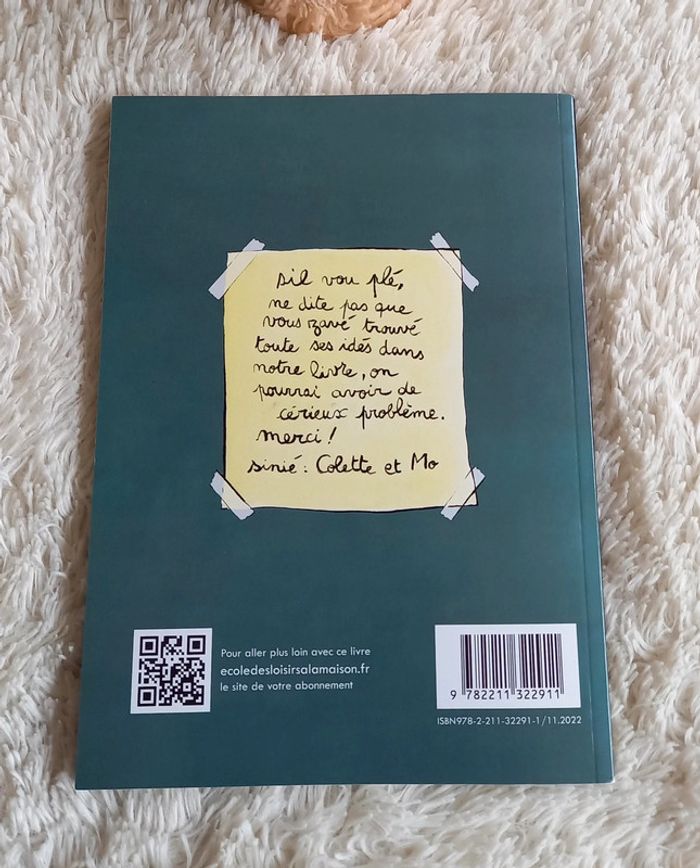 sil vou plé,
ne dite pas que
vous zavé trouvé
toute ses idés dans
notre livre, on
pourrai avoir de
cérieux problème.
merci !
sinié : Colette et Mo
Pour aller plus loin avec ce livre
ecoledesloisirsalamaison.fr
le site de votre abonnement
9 782211 322911
ISBN978-2-211-32291-1/11.2022